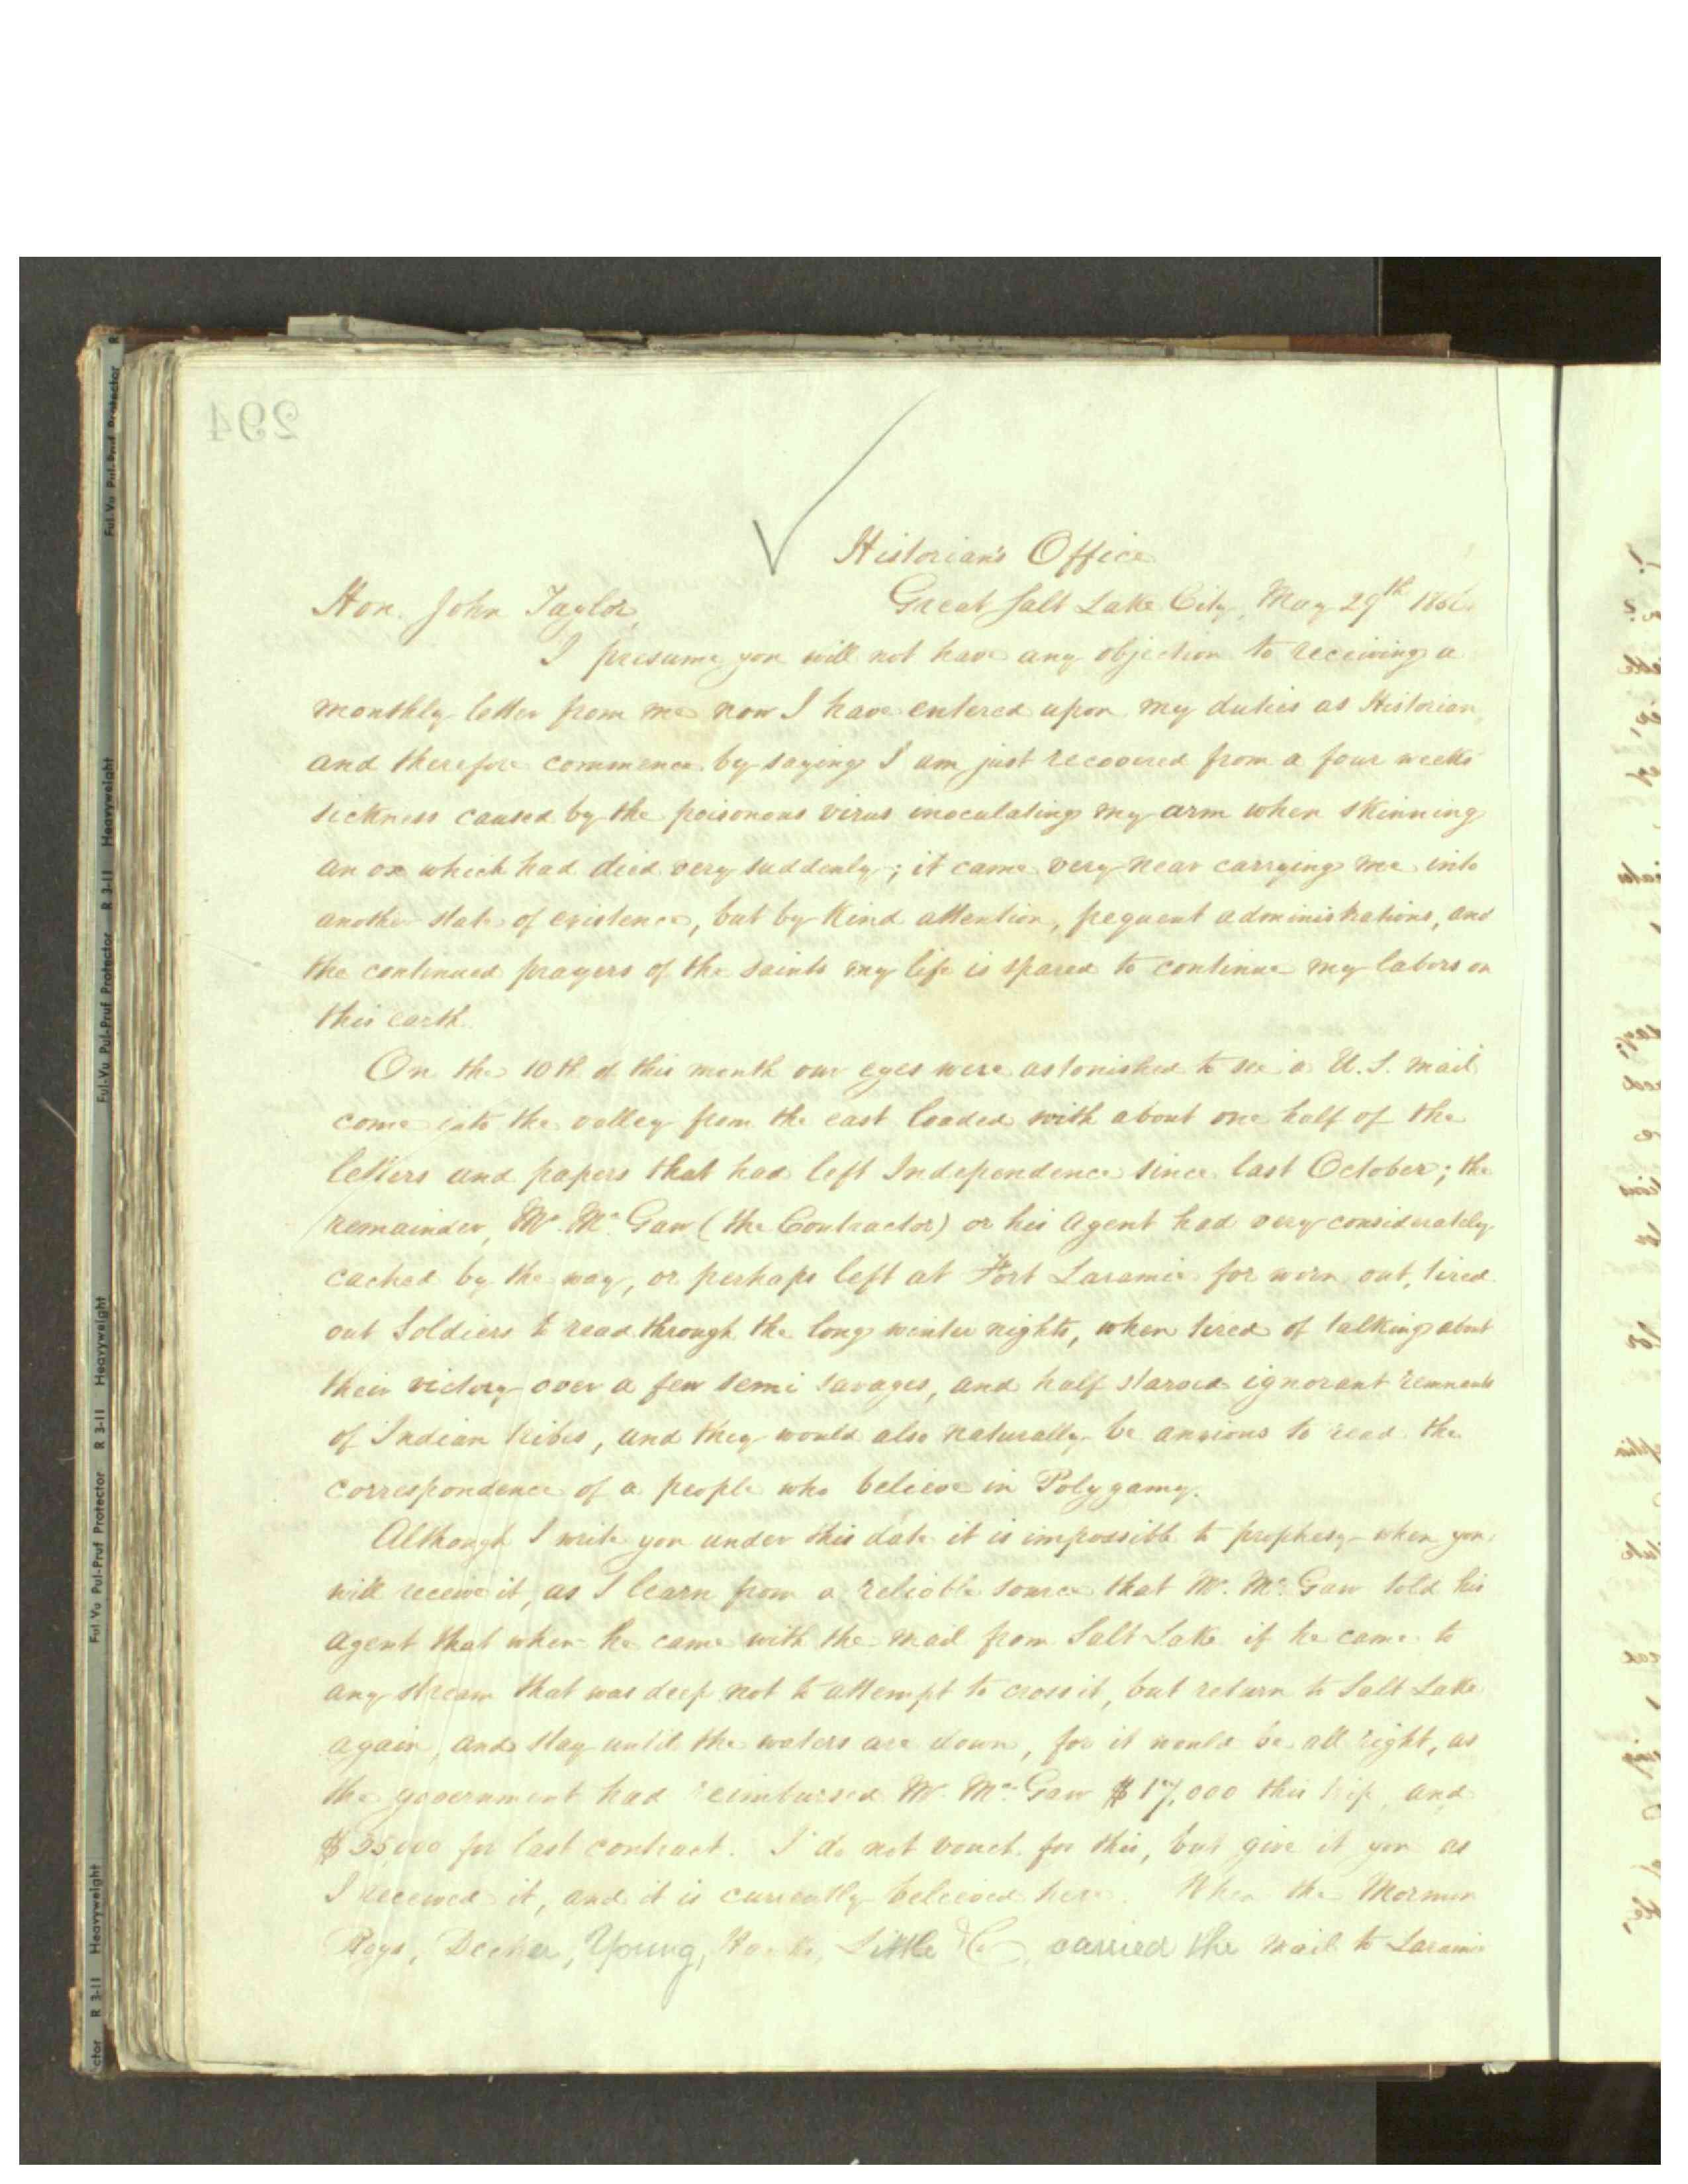 294
Historian's Office
Great Salt Lake City, May 29th 1856.
Hon. John Taylor,
I presume you will not have any objection to receiving a
monthly letter from me now I have entered upon my duties as Historian,
and therefore commence by saying I am just recovered from a four weeks
sickness caused by the poisonous virus inoculating my arm when skinning
an ox which had died very suddenly; it came very near carrying me into
another state of existence, but by kind attention, frequent administrations, and
the continued prayers of the Saints my life is spared to continue my labors on
this earth.
On the 10th of this month our eyes were astonished to see a U.S. mail
come into the valley from the east loaded with about one half of the
letters and papers that had left Independence since last October; the
remainder, Mr. McGaw (the Contractor) or his Agent had very considerately
cached by the way, or perhaps left at Fort Laramie for worn out, tired
out Soldiers to read through the long winter nights, when tired of talking about
their victory over a few semi savages, and half starved ignorant remnants
of Indian tribes, and they would also naturally be anxious to read the
correspondence of a people who believe in Polygamy.
Although I write you under this date it is impossible to prophesy when you
will receive it, as I learn from a reliable source that Mr. McGaw told his
Agent that when he came with the mail from Salt Lake if he came to
any stream that was deep not to attempt to cross it, but return to Salt Lake
again, and stay until the waters are down, for it would be all right, as
the government had reimbursed Mr. McGaw $17,000 this trip, and
$35,000 for last contract. I do not vouch for this, but give it you as
I received it, and it is currently beleived here. When the Mormon
Boys, Decker, Young, Little &c, carried the mail to Laramie
Ful-Vu Pul-Pruf Protector R 3-11 Heavyweight